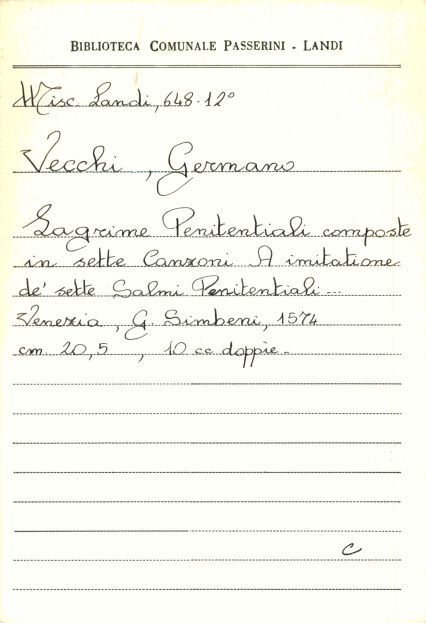 BIBLIOTECA COMUNALE PASSERINI - LANDI
Misc. Landi, 648-12°
Vecchi, Germano
Lagrime Penitentiali composte
in sette Canzoni A imitatione
de' sette Salmi Penitentiali...
Venezia, G. Simbeni, 1574
cm 20,5, 10 cc doppie.
C